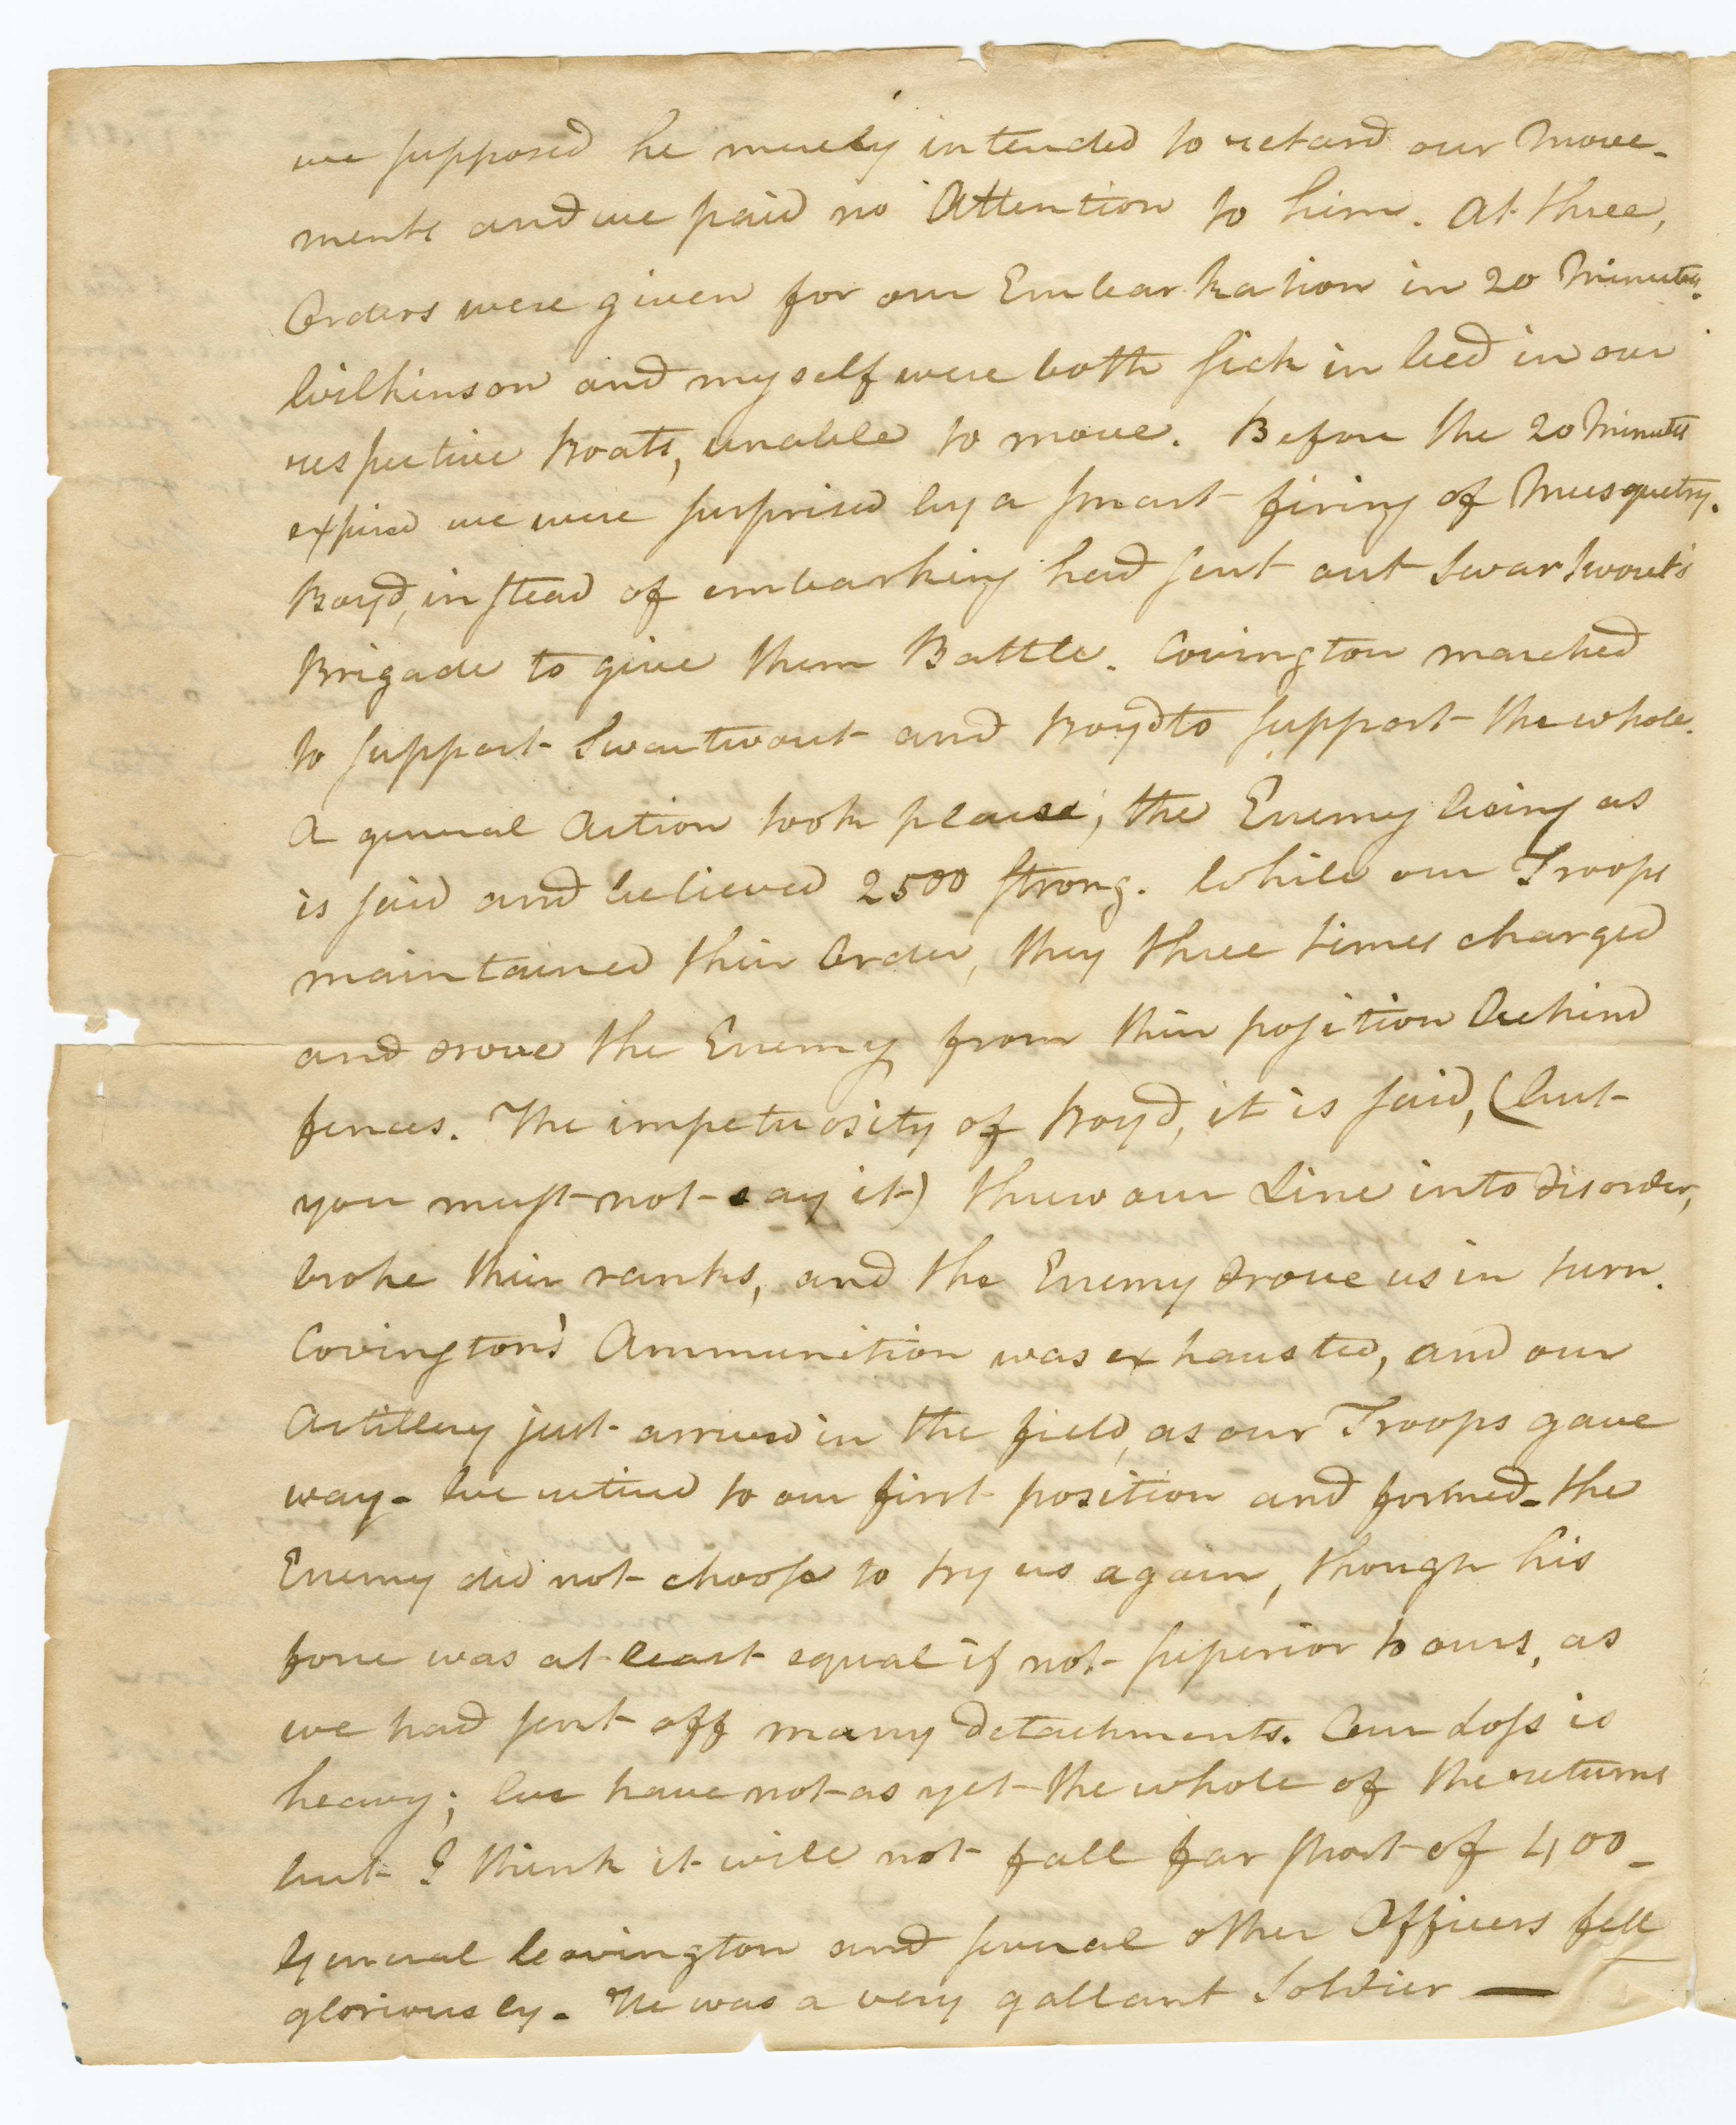 we supposed he merely intended to retard our Move-
ments and we paid no Attention to him. At three,
Orders were given for our Embarkation in 20 Minutes.
Wilkinson and myself were both sick in bed in our
respective Boats, unable to move. Before the 20 Minutes
expired we were surprised by a smart firing of Musquetry.
Boyd, instead of embarking had sent out Swartwout's
Brigade to give them Battle. Covington marched
to support Swartwout and Boyd to support the whole.
A general Action took place, the Enemy being as
is said and believed 2500 strong. While our Troops
maintained their Order, they three times charged
and drove the Enemy from their position behind
fences. The impetuosity of Boyd, it is said, (but
you must not say it) threw our Line into disorder,
broke their ranks, and the Enemy drove us in turn.
Covington's Ammunition was exhausted, and our
Artillery just arrived in the field, as our Troops gave
way - We retired to our first position and formed - the
Enemy did not choose to try us again, though his
force was at least equal if not superior to ours, as
we had sent off many detachments. Our Loss is
heavy; We have not as yet the whole of the returns
but I think it will not fall far short of 400 -
General Covington and several other Officers fell
gloriously - He was a very gallant Soldier —